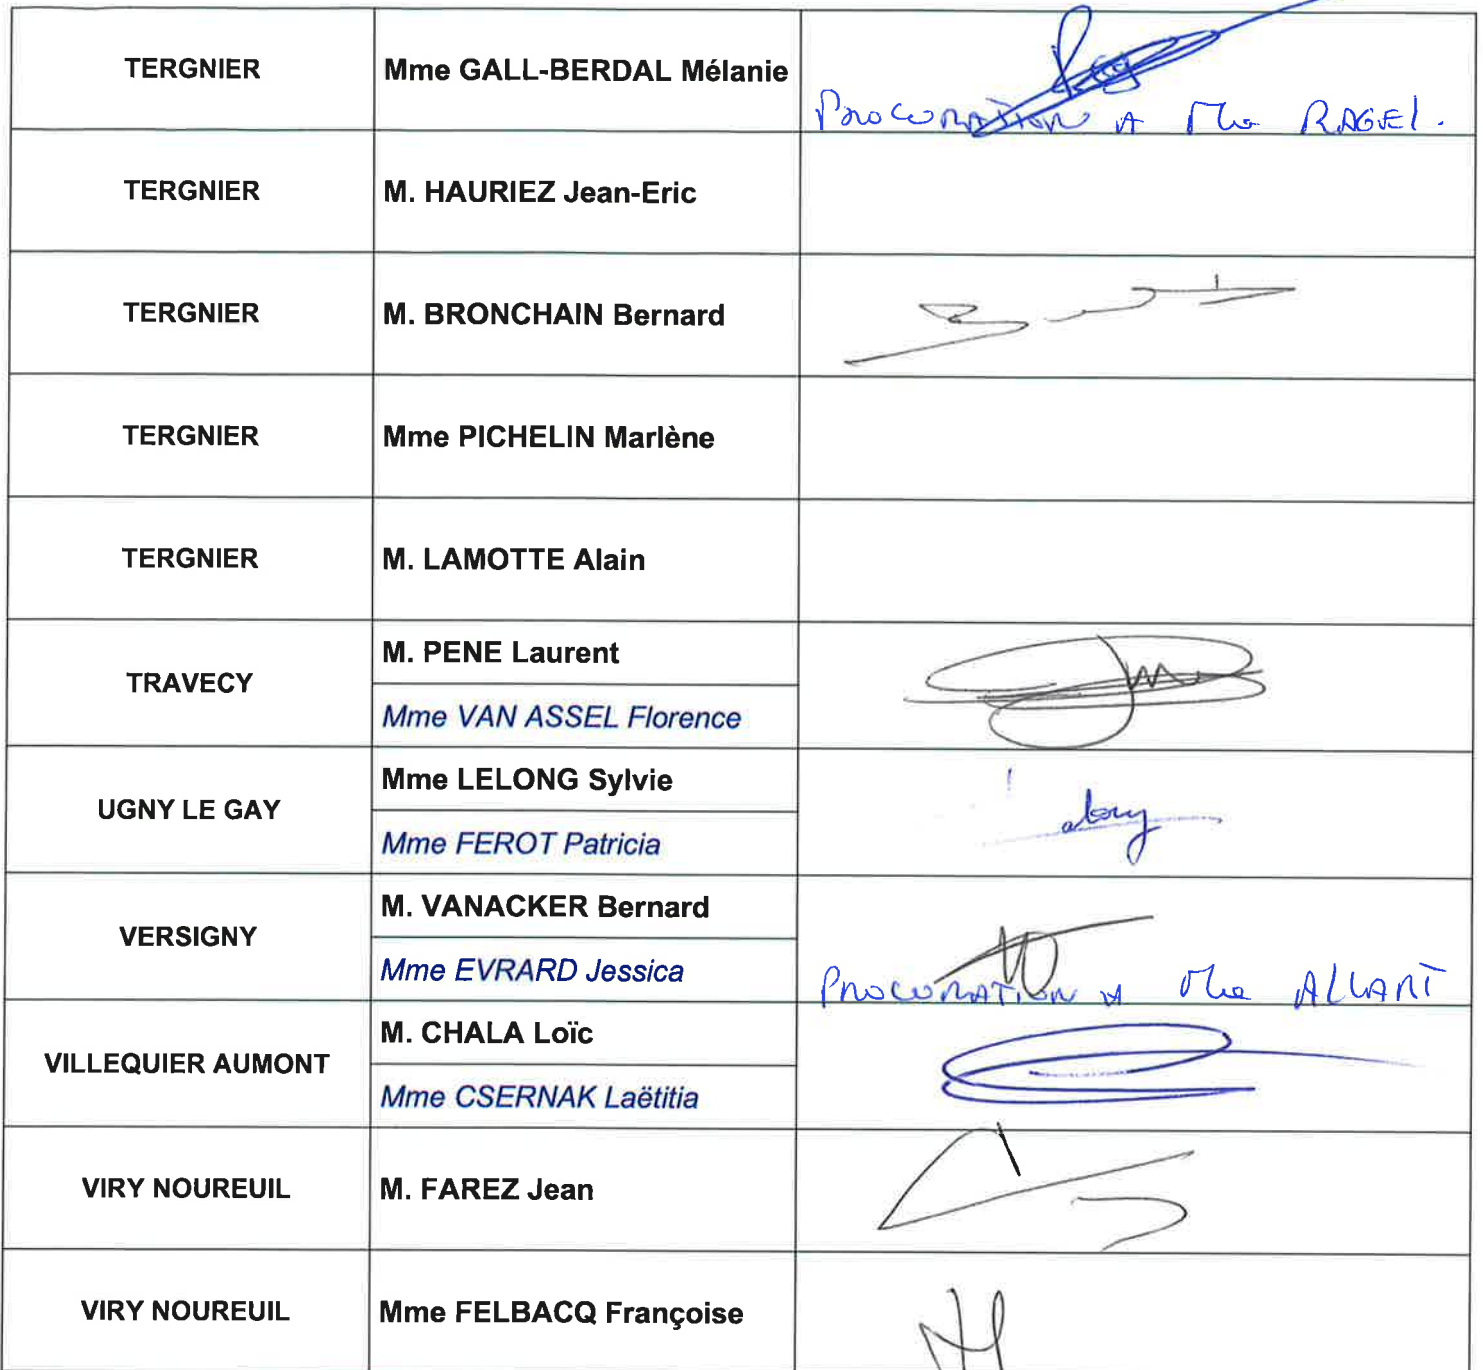 TERGNIER Mme GALL-BERDAL Mélanie
PROCURATION A Mme RAGEL.
TERGNIER M. HAURIEZ Jean-Eric
TERGNIER M. BRONCHAIN Bernard
TERGNIER Mme PICHELIN Marlène
TERGNIER M. LAMOTTE Alain
TRAVECY M. PENE Laurent
Mme VAN ASSEL Florence
UGNY LE GAY Mme LELONG Sylvie
Mme FEROT Patricia
VERSIGNY M. VANACKER Bernard
Mme EVRARD Jessica
PROCURATION A Mme ALLART
VILLEQUIER AUMONT M. CHALA Loïc
Mme CSERNAK Laëtitia
VIRY NOUREUIL M. FAREZ Jean
VIRY NOUREUIL Mme FELBACQ Françoise